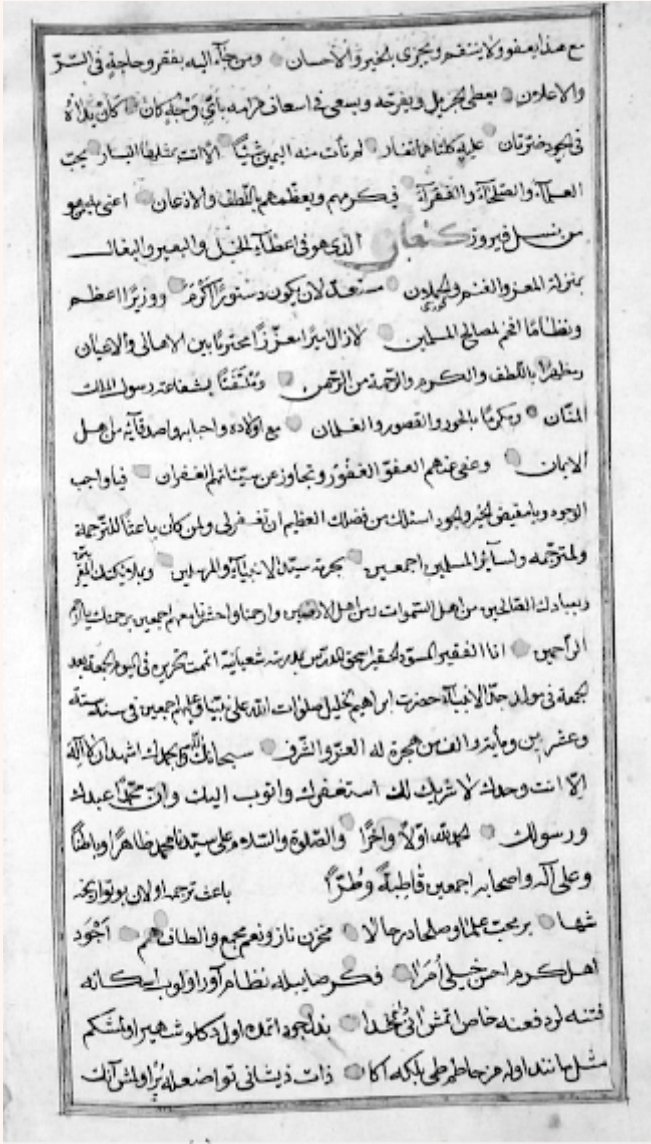 مع هذا يعفو ولا ينتقم ويجزى بالخير والاحسان ومن جاء اليه بفقر وحاجة فى السر
والاعلان يعطى الجزيل ويفرحه ويسعى فى اسعاف مرامه باى وجه كان كان يداه
فى الجود عليه كلتاهما لم تأت منه اليمين شيئا الا اتت بمثلها اليسار يحب
العلماء والصلحاء والفقراء فيكرمهم ويعظمهم باللطف والاذعان اعنى به هو
من نسل فيروز كنعان الذى هو فى اعطاء الخيل والبعير والبغال
بمنزلة المعز والغنم مستعد لان يكون دستورا اكرم ووزيرا اعظم
ونظاما افخم لمصالح المسلمين لازال ميرا معززا محترما بين الاهالى والاعيان
باللطف والكرم والرحمة من الرحمن بشفاعة رسول الملك
المنان ومكرما بالحور والقصور والغلمان مع اولاده واحبابه واصدقائه من اهل
الايمان وعفى عنهم العفو الغفور وتجاوز عن سيئاتهم الغفران فيا واجب
الوجود ويا مفيض الخير والجود اسئلك من فضلك العظيم ان تغفر لى ولمن كان باعثا للترجمة
ولمترجمه ولسائر المسلمين اجمعين بحرمة سيد الانبياء والمرسلين وبملائكتك المقربين
وبعبادك الصالحين من اهل السموات ومن اهل الارضين وارحمنا واحشرنا معهم اجمعين برحمتك يا ارحم
الراحمين انا الفقير المسود الحقير اسحق المدرس بمدرسة شعبانية اتممت تحريره فى اليوم الجمعة بعد
الجمعة فى مولد جد الانبياء حضرت ابراهيم الخليل صلوات الله على نبينا وعليهم اجمعين فى سنة ستة
وعشرين ومأتين والف من هجرة من له العز والشرف سبحانك اللهم وبحمدك اشهد ان لا اله
الا انت وحدك لا شريك لك استغفرك واتوب اليك وان محمدا عبدك
ورسولك الحمد لله اولا واخرا والصلوة والسلام على سيدنا محمد ظاهرا وباطنا
وعلى آله واصحابه اجمعين قاطبة وطرا باعث ترجمه اولان بو تواريخه
شها بر محب علما وصلحا در حالا مخزن ناز ونعم مجمع والطاف همم اجود
اهل كرم احسن خيلى امرا فكر صايبله نظام آور اولوب اسكانه
فتنه لرد فعنه خاص اتمش انى خدا بذل جود اتمده اول دكلو شهير اولمش كم
مثل مانند اوله مز حاطم طى بلكه اكا ذات ذيشانى تواضعله پر اولمش آنك